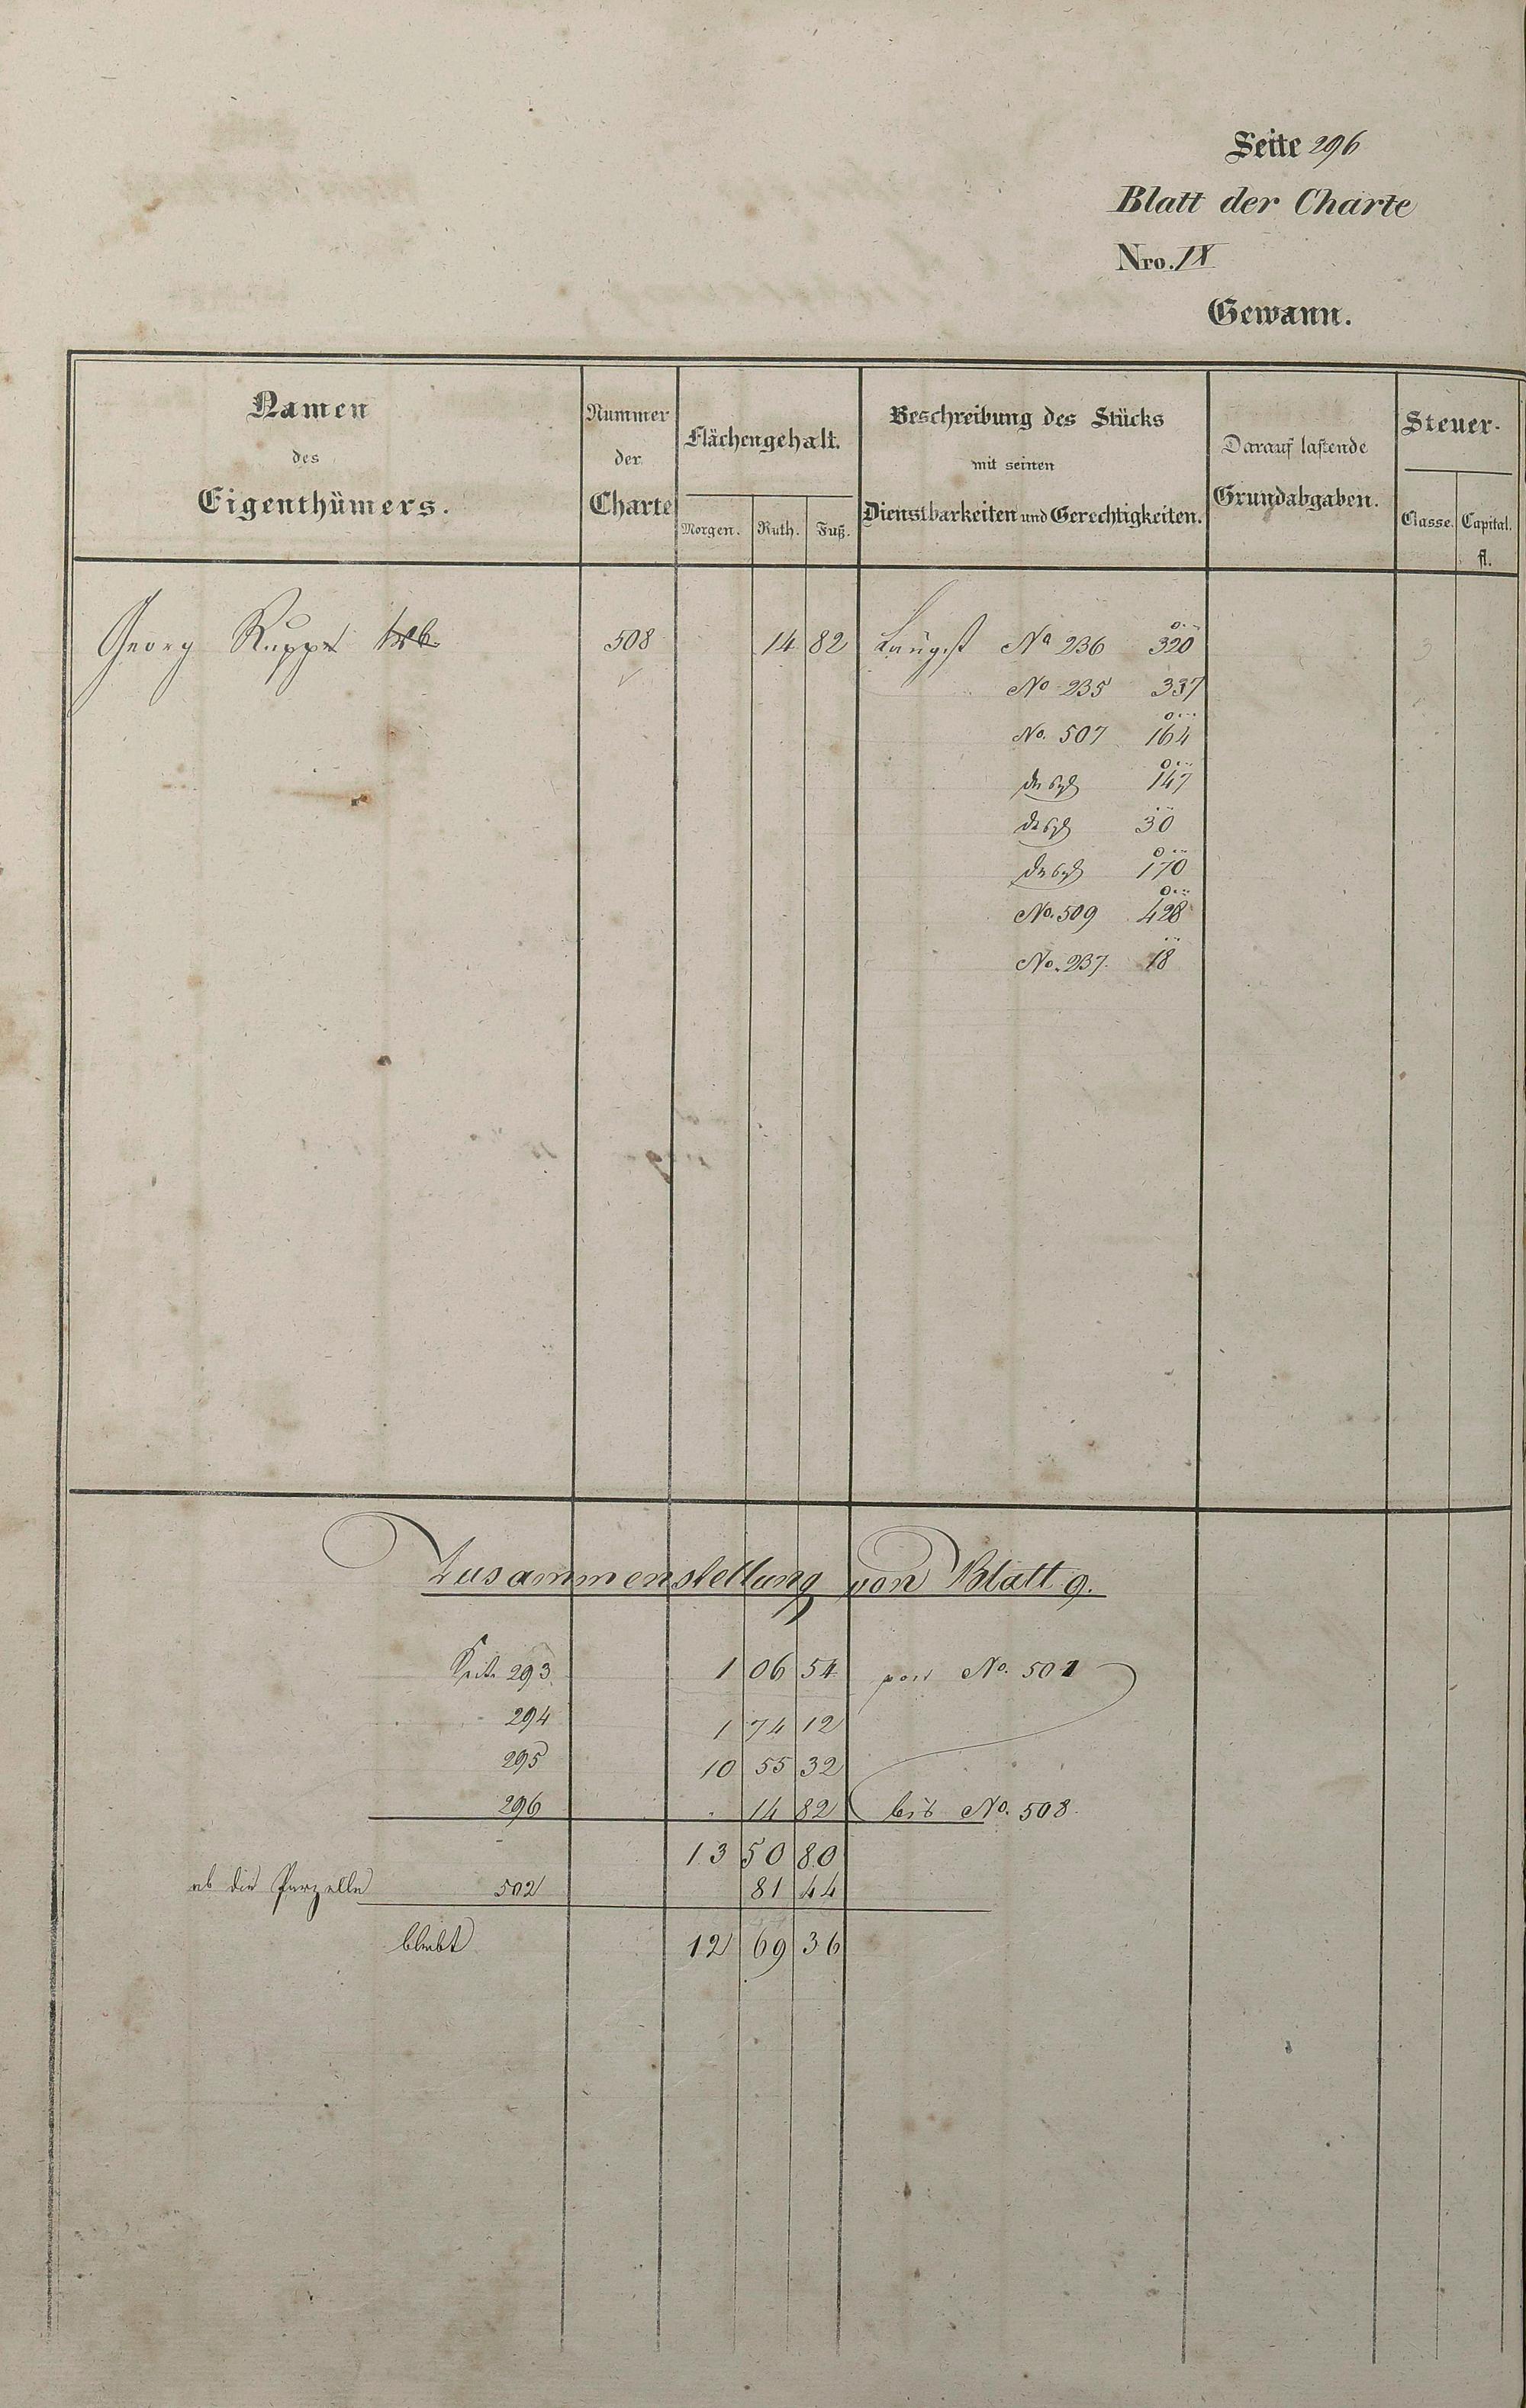 Seite 296
Blatt der Charte
Nro. IX
Gewann.
Namen des Eigenthümers.
Nummer der Charte
Flächengehalt.
Morgen. Ruth. Fuß.
Beschreibung des Stücks mit seinen Dienstbarkeiten und Gerechtigkeiten.
Darauf lastende Grundabgaben.
Steuer-
Classe. Capital. fl.
Georg Rupp 508 14 82 Längst No 236 320
No 235 337
No. 507 164
desgl 147
desgl 30
desgl 170
No. 509 428
No. 237. 18
Zusammenstellung von Blatt 9.
Seite 293 1 06 54 von No. 501
294 1 74 12
295 10 55 32
296 . 14 82 bis No. 508.
13 50 80
ab die Parzelle 502 81 44
bleibt 12 69 36